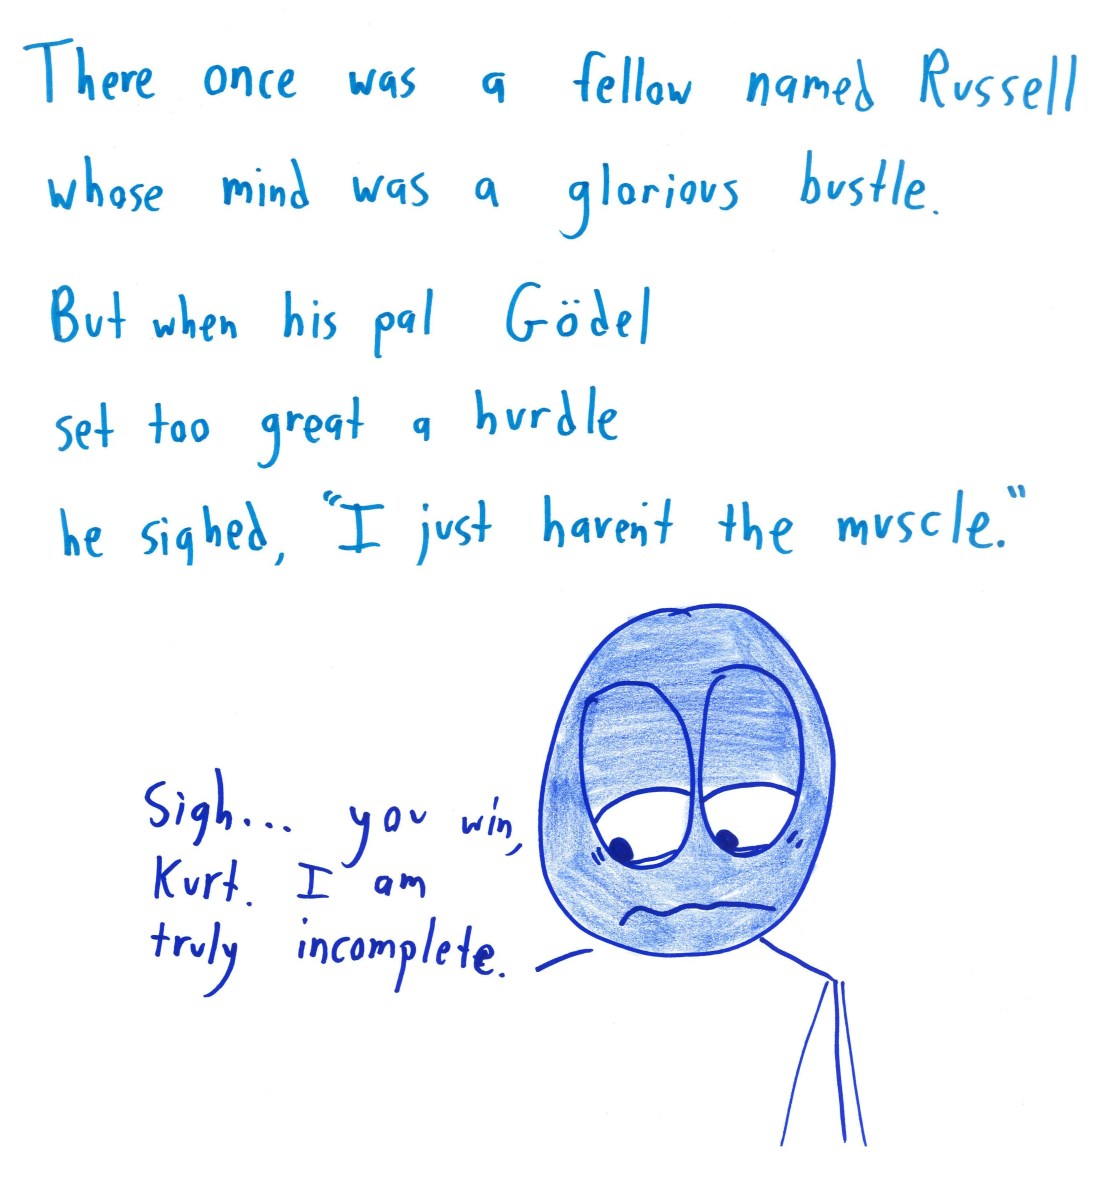 There once was a fellow named Russell
whose mind was a glorious bustle.
But when his pal Gödel
set too great a hurdle
he sighed, "I just haven't the muscle."
Sigh... you win,
Kurt. I am
truly incomplete.